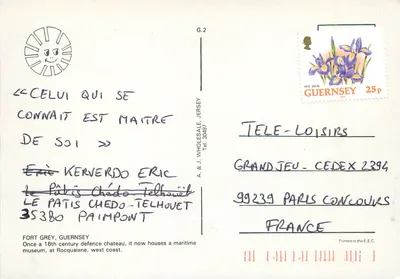 G.2
« CELUI QUI SE
CONNAIT EST MAITRE
DE SOI »
Eric KERVERDO ERIC
Le Pâtis Chédo-Telhouët
LE PATIS CHEDO-TELHOUET
35380 PAIMPONT
FORT GREY, GUERNSEY
Once a 16th century defence chateau, it now houses a maritime
museum, at Rocquaine, west coast.
A. & J. WHOLESALE, JERSEY
Tel. 30497
GUERNSEY 25p
TELE-LOISIRS
GRAND JEU - CEDEX 2394
99239 PARIS CONCOURS
FRANCE
Printed in the E.E.C.